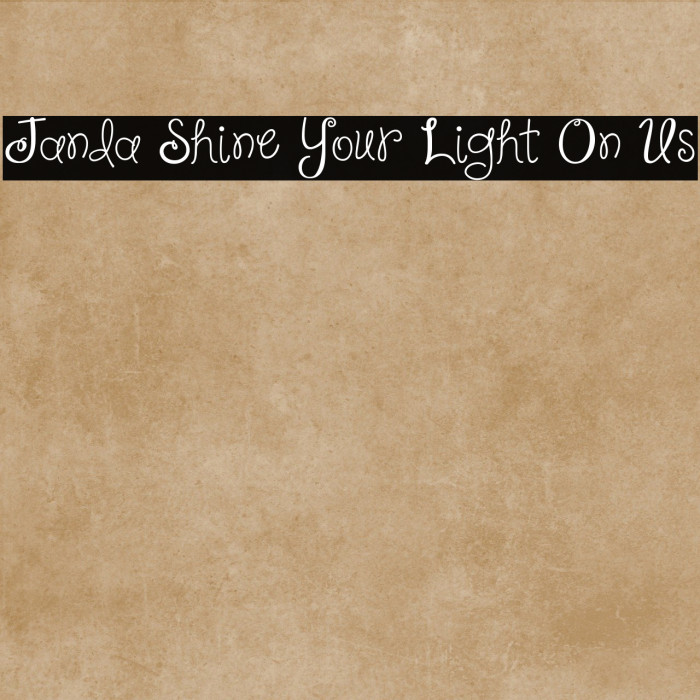 Janda Shine Your Light On Us